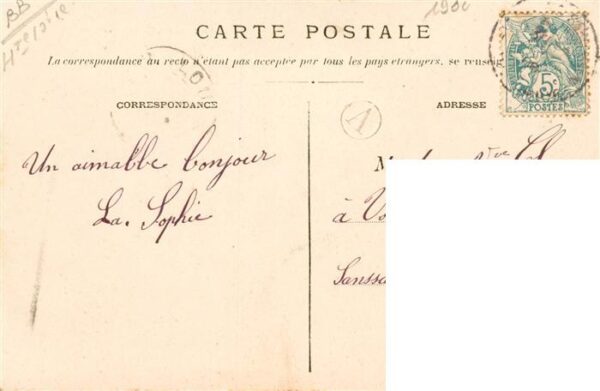 BB
1906
CARTE POSTALE
La correspondance au recto n'étant pas acceptée par tous les pays étrangers, se renseig
CORRESPONDANCE
ADRESSE
5c
POSTES
A
Un aimablbe bonjour
La. Sophie
Vve
à
Sanssa